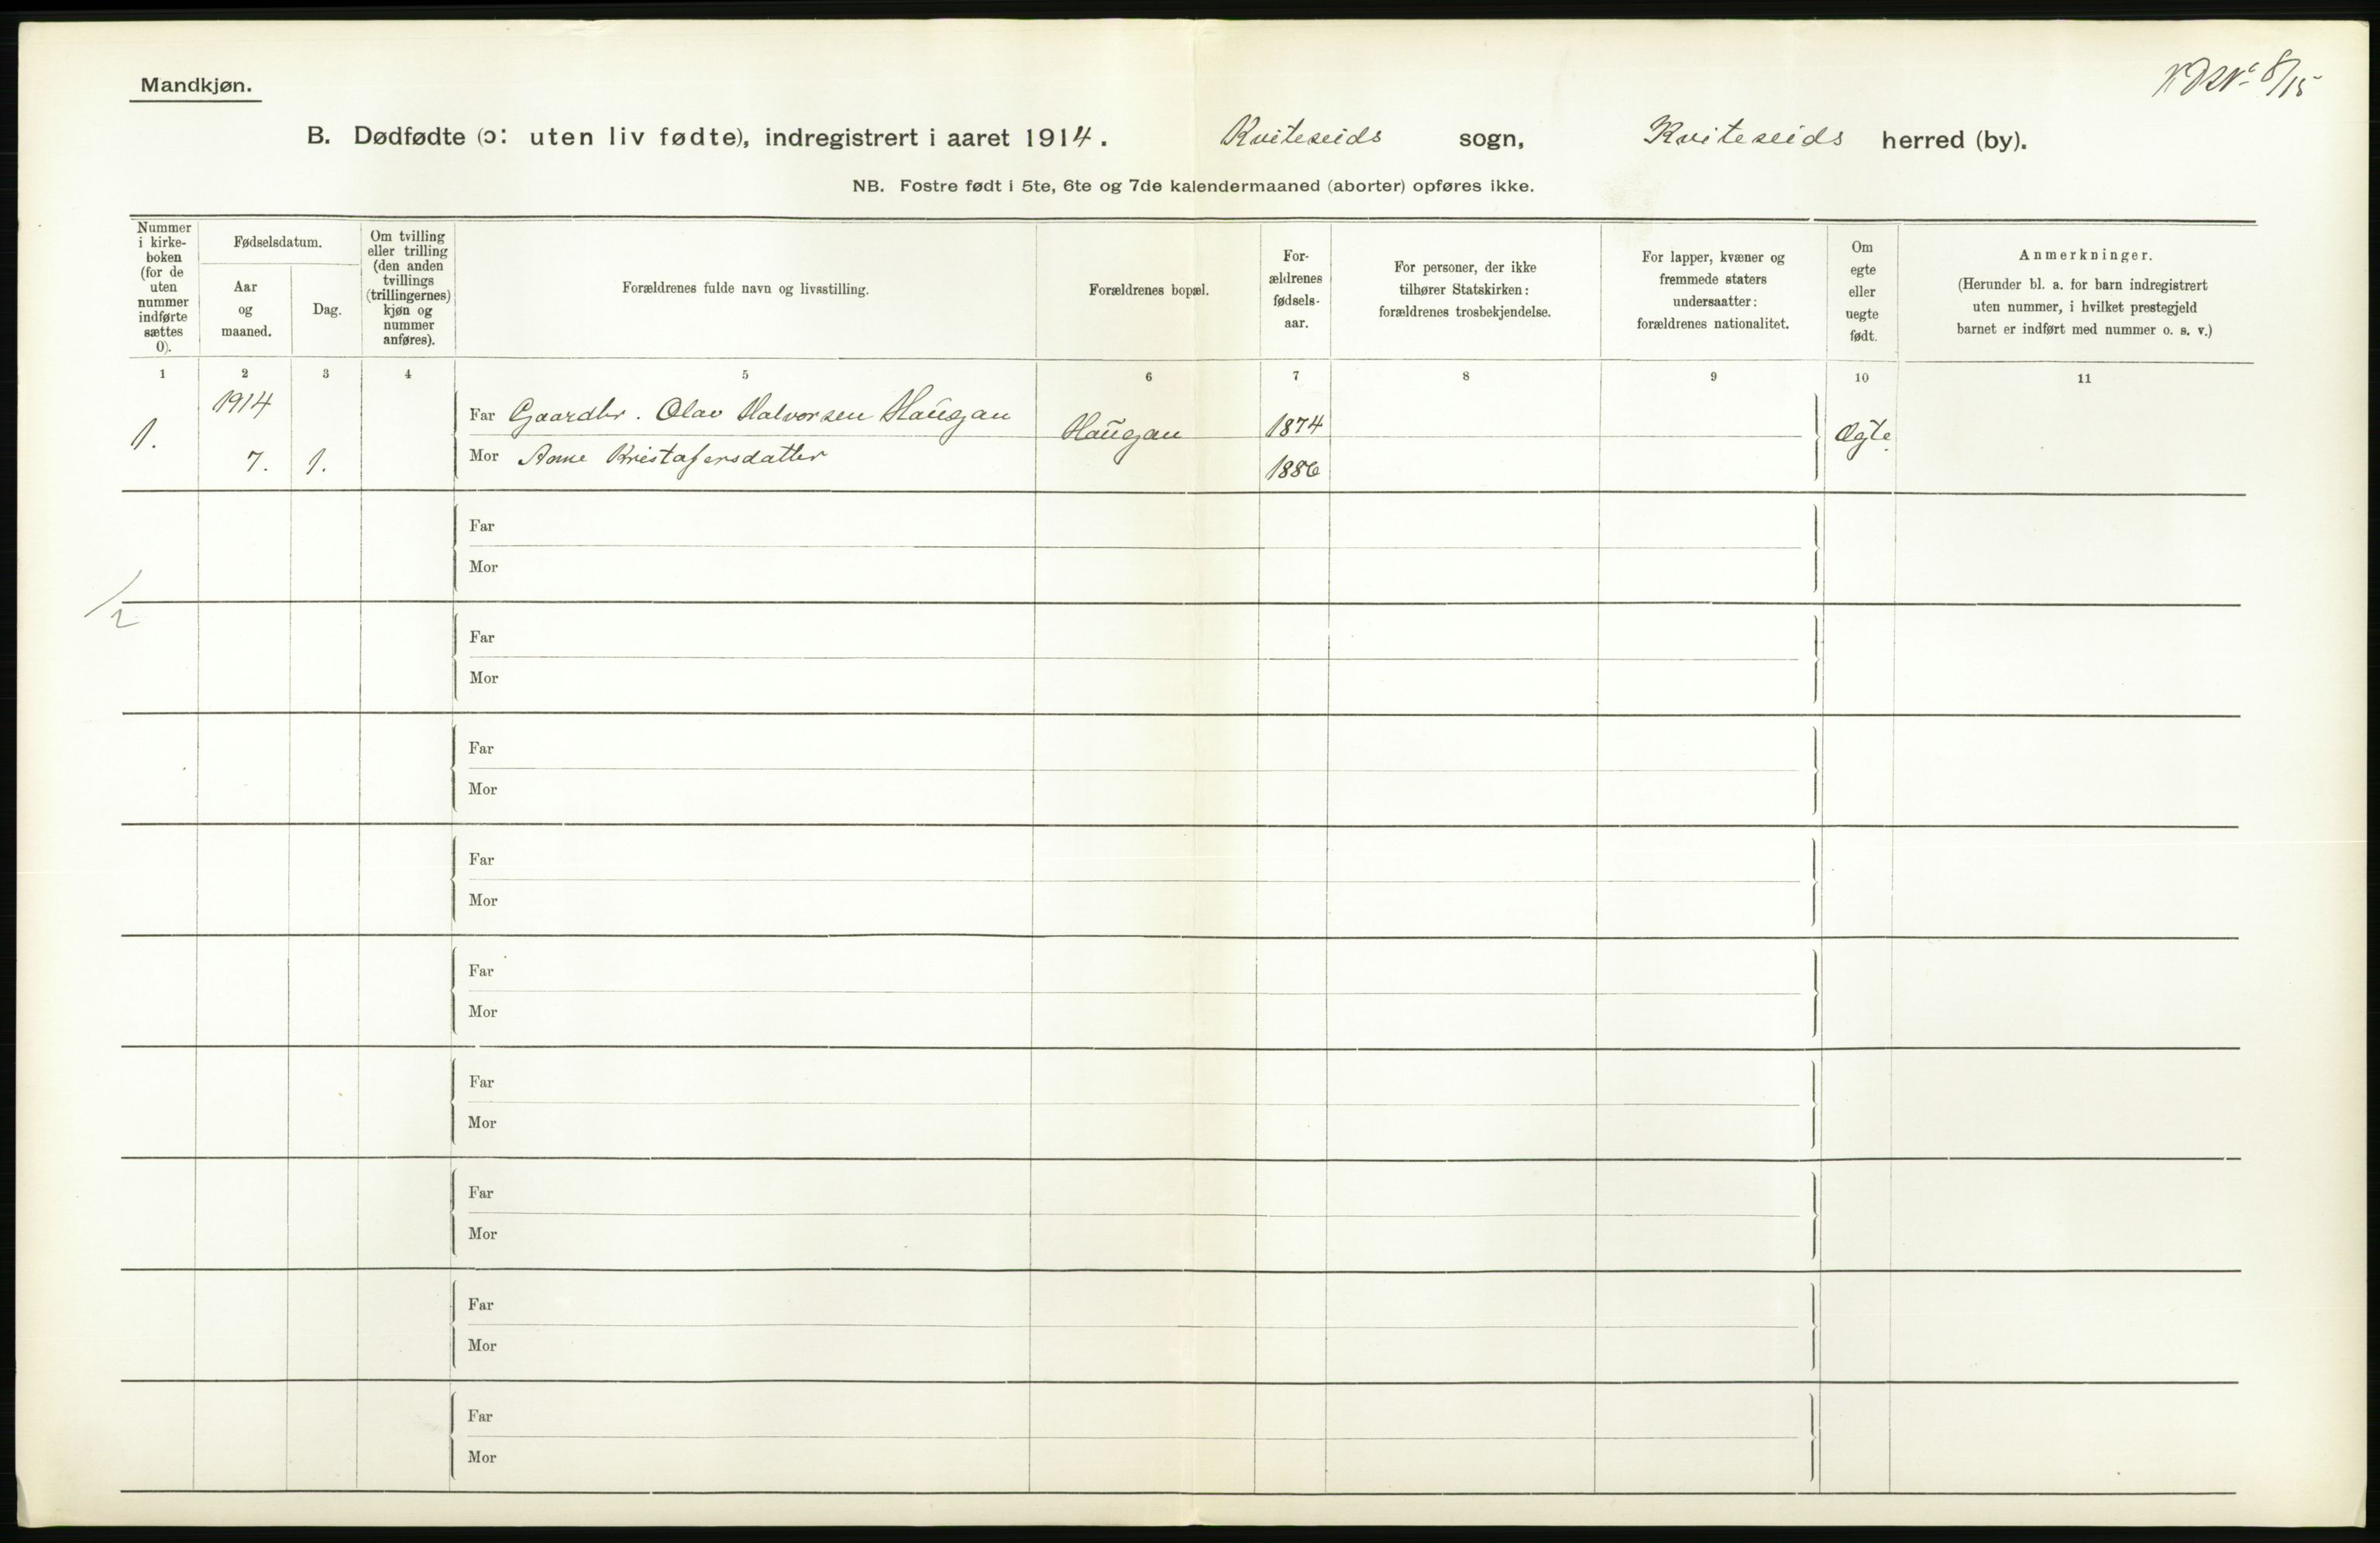 Mandkjøn.
8/15
B. Dødfødte (ɔ: uten liv fødte), indregistrert i aaret 1914. Kviteseids sogn, Kviteseids herred (by).
NB. Fostre født i 5te, 6te og 7de kalendermaaned (aborter) opføres ikke.
Nummer
i kirke-
boken
(for de
uten
nummer
indførte
sættes
0).
Fødselsdatum.
Aar
og
maaned.
Dag.
Om tvilling
eller trilling
(den anden
tvillings
(trillingernes)
kjøn og
nummer
anføres).
Forældrenes fulde navn og livsstilling.
Forældrenes bopæl.
For-
ældrenes
fødsels-
aar.
For personer, der ikke
tilhører Statskirken:
forældrenes trosbekjendelse.
For lapper, kvæner og
fremmede staters
undersaatter:
forældrenes nationalitet.
Om
egte
eller
uegte
født.
Anmerkninger.
(Herunder bl. a. for barn indregistrert
uten nummer, i hvilket prestegjeld
barnet er indført med nummer o. s. v.)
1 2 3 4 5 6 7 8 9 10 11
1. 1914 7. 1.
Far Gaardbr. Olav Halvorsen Haugan Haugan 1874 Ægte.
Mor Anne Kristofersdatter 1886
Far
Mor
1/2
Far
Mor
Far
Mor
Far
Mor
Far
Mor
Far
Mor
Far
Mor
Far
Mor
Far
Mor